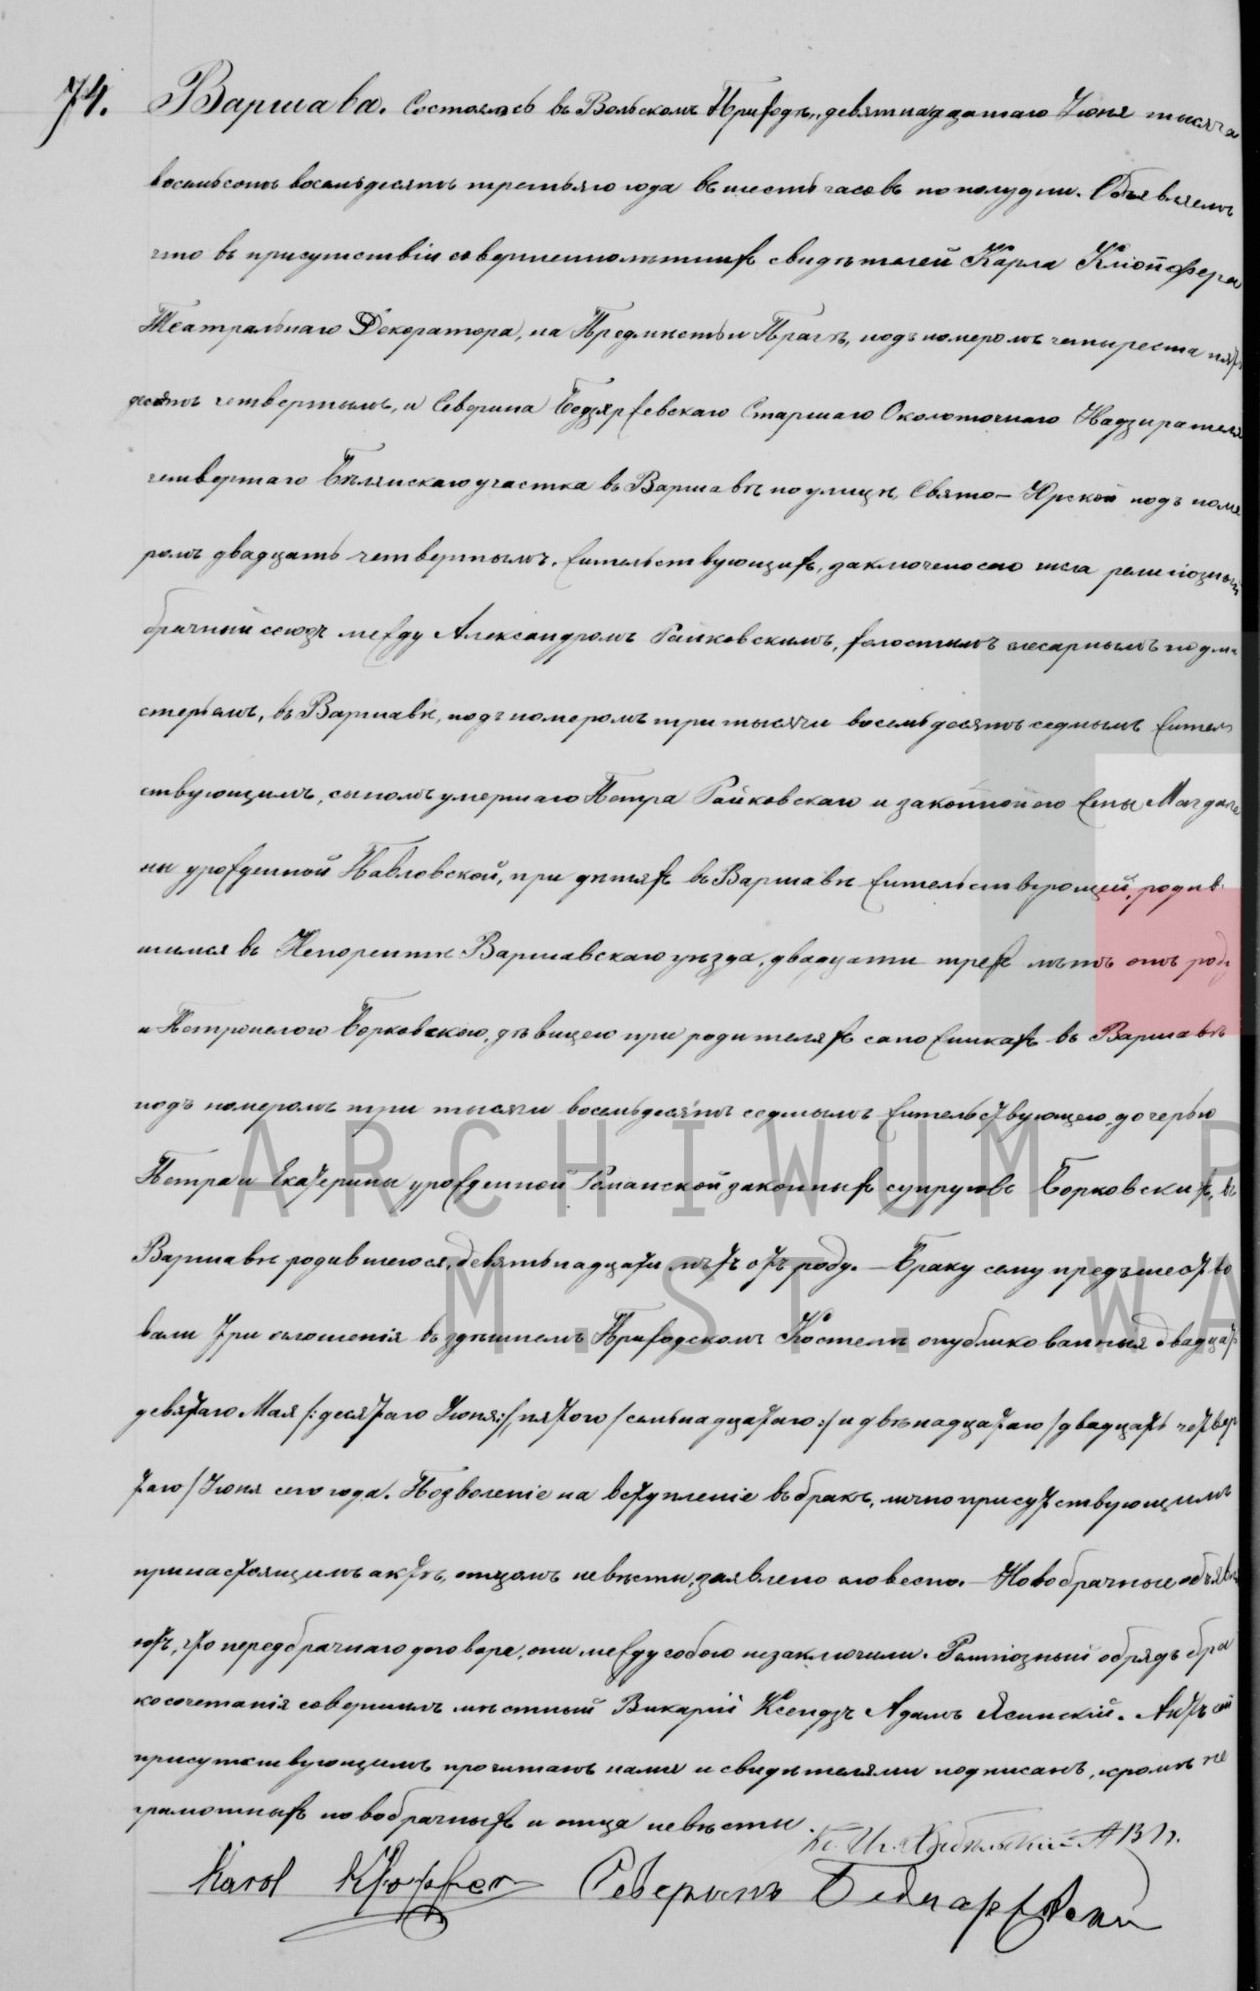 74. Варшава. Состоялось въ Вольскомъ Приходѣ, девятнадцатаго Іюня тысяча
восемьсотъ восемьдесятъ третьяго года въ шесть часовъ по полудни. Объявляемъ
что въ присутствіи совершеннолѣтнихъ свидѣтелей Карла Клопфера
Театральнаго Декоратора, на Предмѣстьи Прагѣ, подъ номеромъ четыреста пять
десятъ четвертымъ, и Северина Беднаржевскаго Старшаго Околоточнаго Надзирателя
четвертаго Бѣлянскаго участка въ Варшавѣ по улицѣ Свято-Юрской подъ номе
ромъ двадцать четвертымъ, жительствующихъ, заключено сего числа религіозный
брачный союзъ между Александромъ Райковскимъ, холостымъ слесарнымъ подма
стерьемъ, въ Варшавѣ, подъ номеромъ три тысячи восемьдесятъ седмымъ житель
ствующимъ, сыномъ умершаго Петра Райковскаго и законной его жены Магдале
ны урожденной Павловской, при дѣтяхъ въ Варшавѣ жительствующей, родив
шимся въ Непорентѣ Варшавскаго уѣзда, двадцати трехъ лѣтъ отъ роду
и Петронелою Борковскою, дѣвицею при родителяхъ сапожникахъ въ Варшавѣ
подъ номеромъ три тысячи восемьдесятъ седмымъ жительствующею, дочерью
Петра и Екатерины урожденной Романской законныхъ супруговъ Борковскихъ, въ
Варшавѣ родившеюся, девятьнадцати лѣтъ отъ роду. — Браку сему предшество
вали три оглашенія въ здѣшнемъ Приходскомъ Костелѣ опубликованныя двадцать
девятаго Мая /:десятаго Іюня:/ пятого /семьнадцатаго:/ и двѣнадцатаго /двадцать четвер
таго/ Іюня сего года. Позволеніе на вступленіе въ бракъ, лично присутствующимъ
при настоящимъ актѣ, отцомъ невѣсты, заявлено словесно. — Новобрачные объявля
ютъ, что передбрачнаго договора, они между собою незаключили. Религіозный обрядъ бра
косочетанія совершилъ мѣстный Викарій Ксендзъ Адамъ Ясинскій. Актъ сей
присутствующимъ прочитанъ нами и свидѣтелями подписанъ, кромѣ не
грамотныхъ новобрачныхъ и отца невѣсты.
Karol Klopffer Северинъ Беднаржевскій
ARCHIWUM P
M. ST. WA